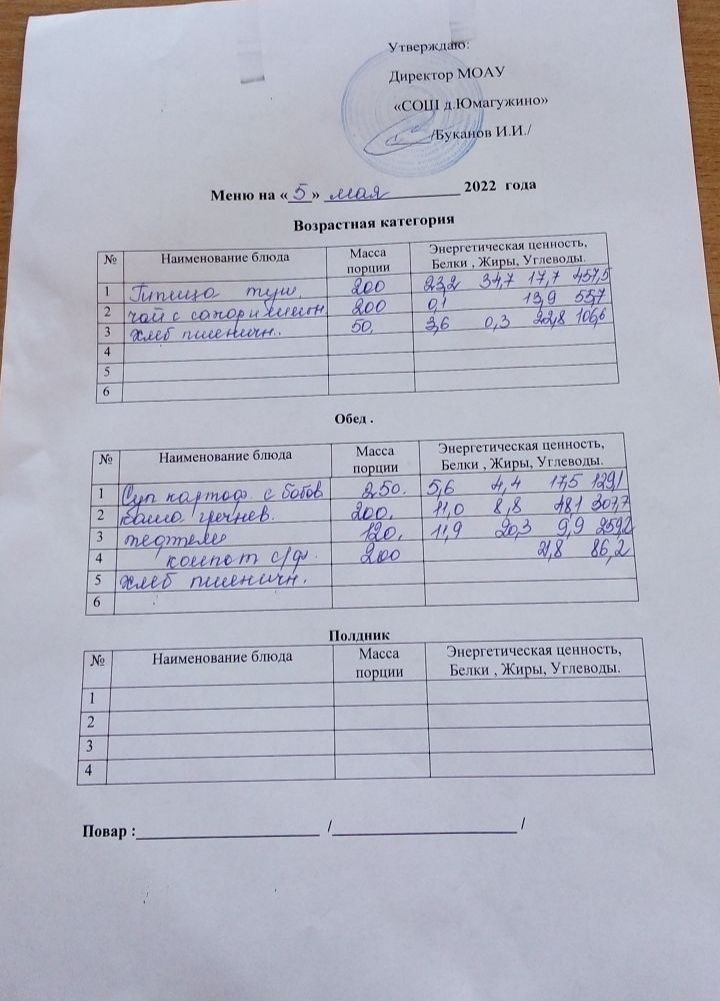 Утверждаю:
Директор МОАУ
«СОШ д.Юмагужино»
/Буканов И.И./
Меню на «5» мая 2022 года
Возрастная категория
№ Наименование блюда Масса порции Энергетическая ценность, Белки , Жиры, Углеводы.
1 туш. 200 23,2 34,7 17,7 457,5
2 чай с сахаром 200 0,1 13,9 55,7
3 хлеб пшеничн. 50. 3,6 0,3 22,8 106,6
4
5
6
Обед .
№ Наименование блюда Масса порции Энергетическая ценность, Белки , Жиры, Углеводы.
1 Суп картоф. с бобов 250. 5,6 4,4 17,5 129,1
2 каша гречнев. 200. 11,0 8,8 48,1 307,7
3 тефтели 120. 11,9 20,3 9,9 259,2
4 компот с/ф. 200 21,8 86,2
5 хлеб пшеничн.
6
Полдник
№ Наименование блюда Масса порции Энергетическая ценность, Белки , Жиры, Углеводы.
1
2
3
4
Повар :______________________ /______________________/